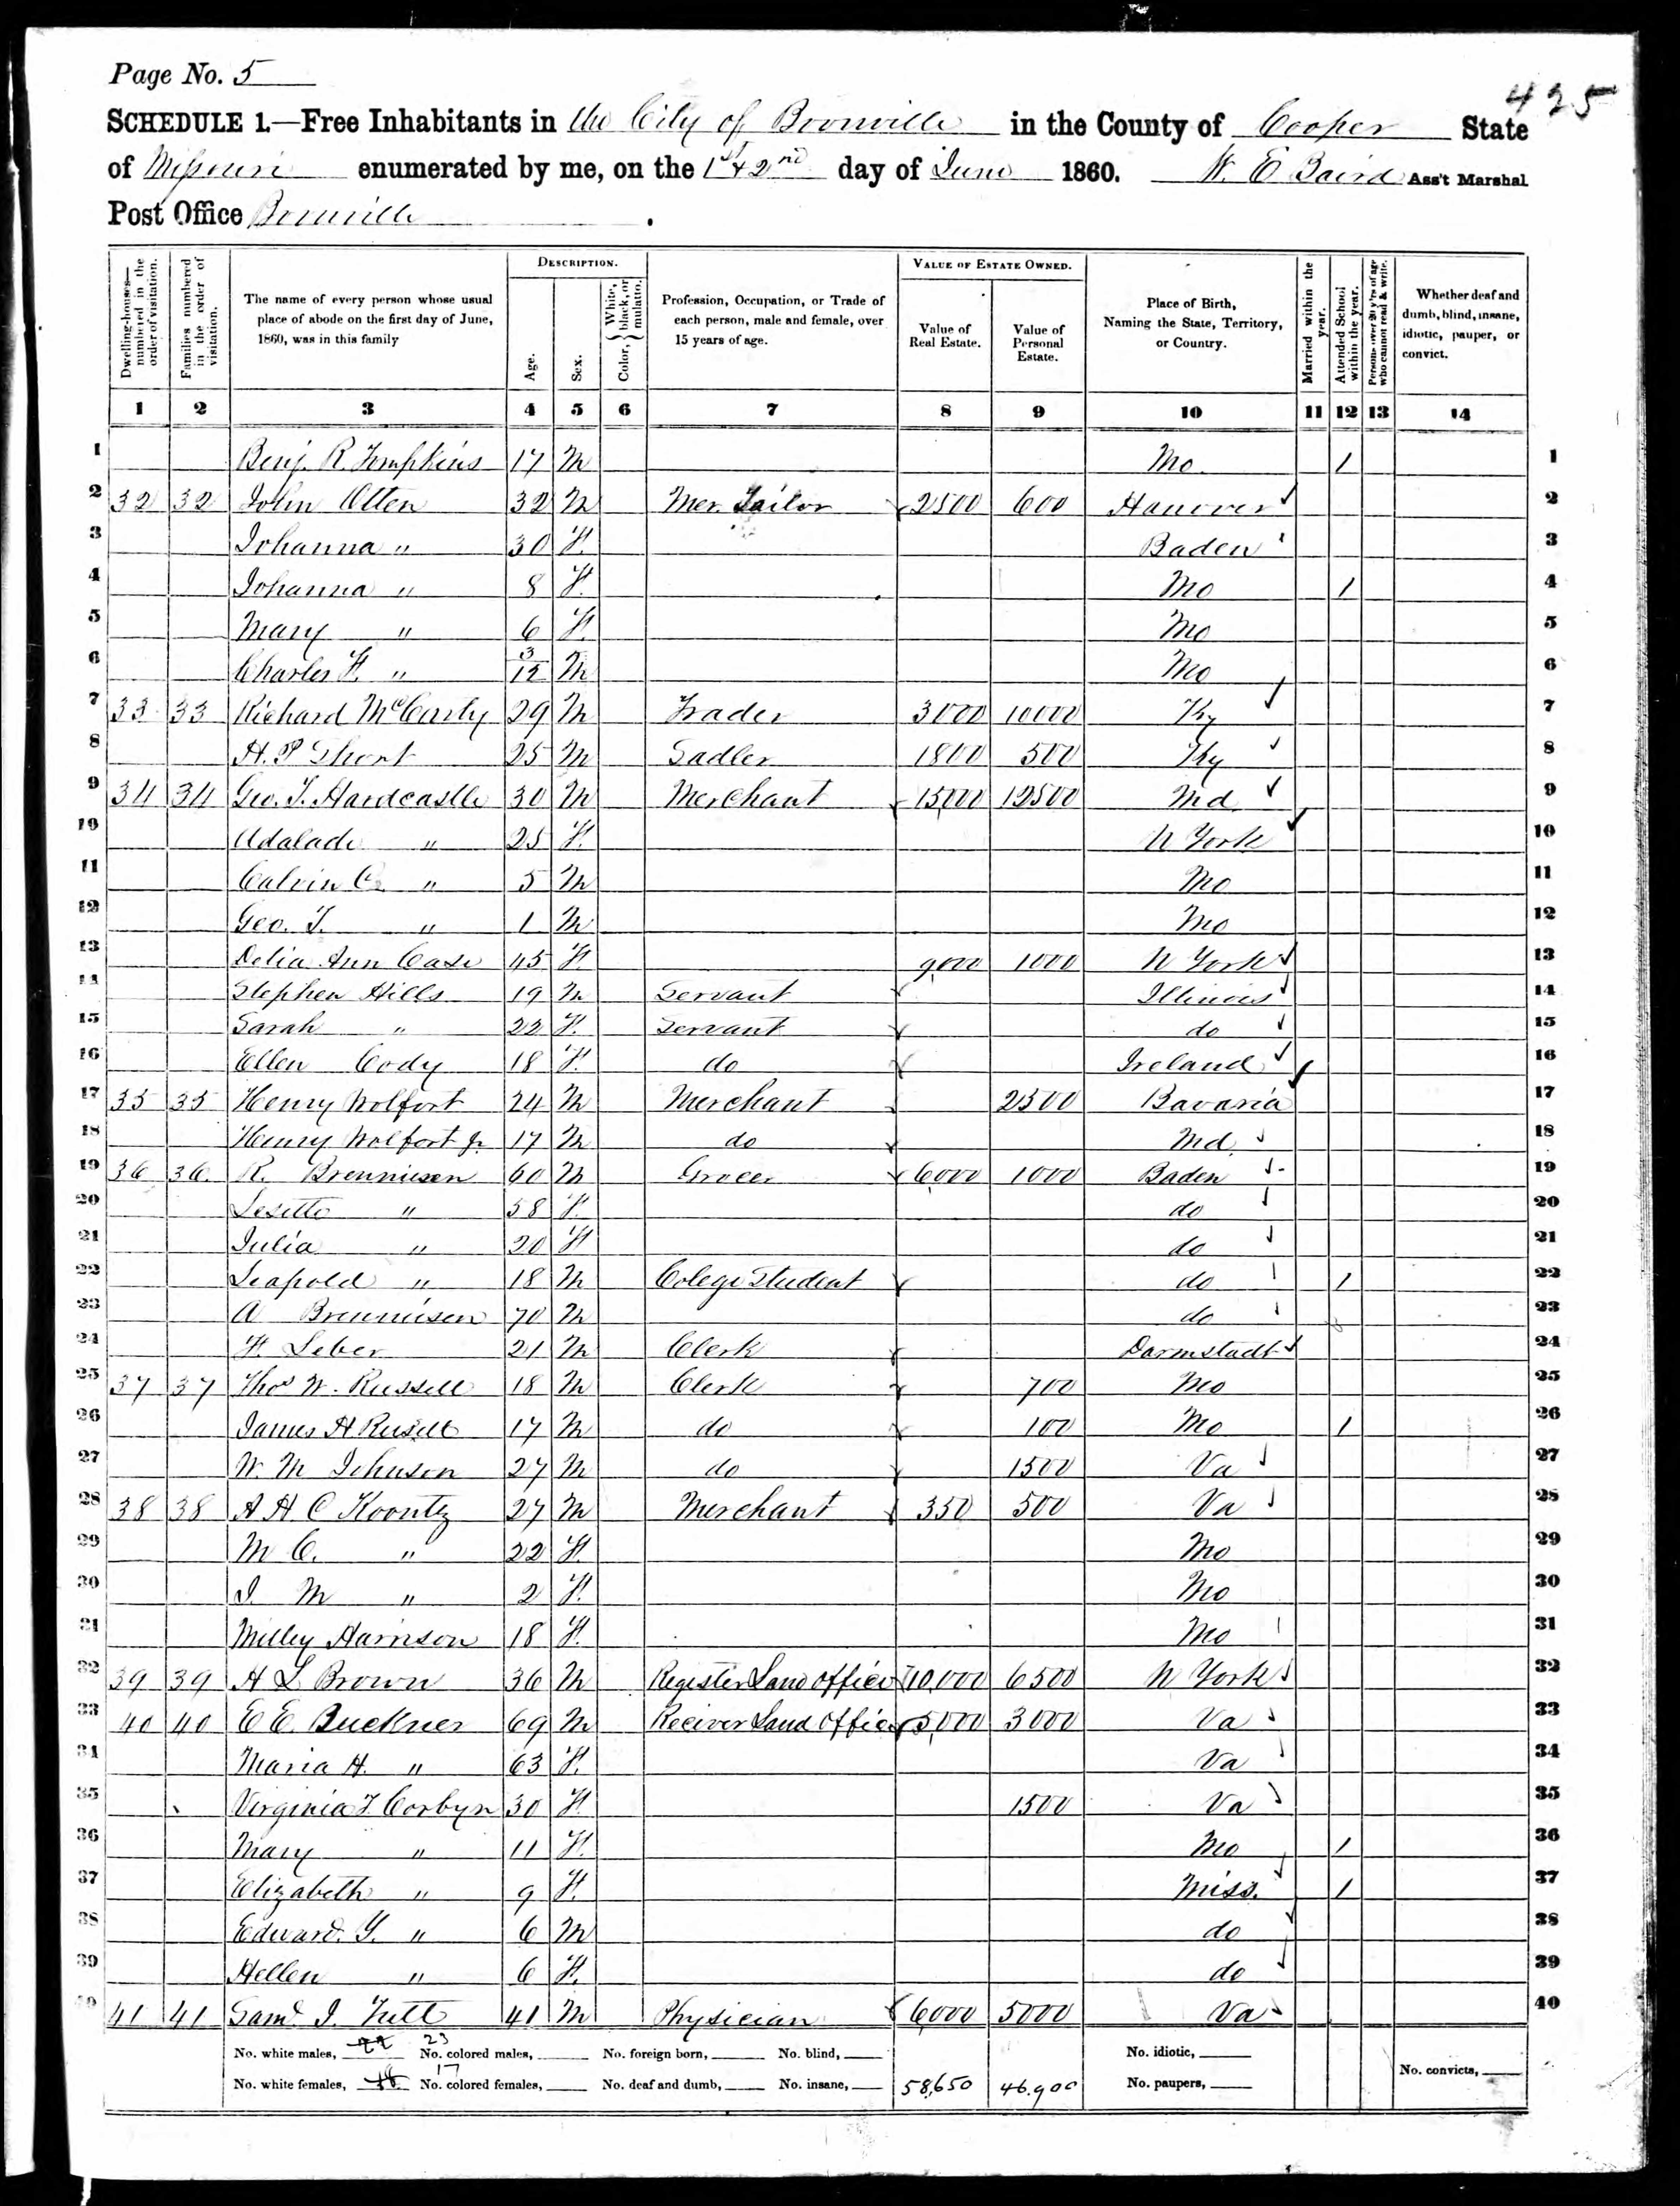 Page No. 5
425
SCHEDULE 1.—Free Inhabitants in the City of Boonville in the County of Cooper State
of Missouri enumerated by me, on the 1st & 2nd day of June 1860. W. E. Baird Ass't Marshal
Post Office Boonville.
Dwelling-houses—numbered in the order of visitation.
Families numbered in the order of visitation.
The name of every person whose usual place of abode on the first day of June, 1860, was in this family
DESCRIPTION.
Age.
Sex.
Color, { White, black, or mulatto.
Profession, Occupation, or Trade of each person, male and female, over 15 years of age.
VALUE OF ESTATE OWNED.
Value of Real Estate.
Value of Personal Estate.
Place of Birth, Naming the State, Territory, or Country.
Married within the year.
Attended School within the year.
Persons over 20 y'rs of age who cannot read & write.
Whether deaf and dumb, blind, insane, idiotic, pauper, or convict.
1 2 3 4 5 6 7 8 9 10 11 12 13 14
1 Benj. R. Tompkins 17 M Mo. 1 1
2 32 32 John Otten 32 M Mer. Tailor 2500 600 Hanover 2
3 Johanna " 30 F. Baden 3
4 Johanna " 8 F. Mo 1 4
5 Mary " 6 F. Mo 5
6 Charles F. " 3/12 M Mo 6
7 33 33 Richard McCarty 29 M Trader 3000 10000 Ky 7
8 H. P Short 25 M Sadler 1800 500 Ky 8
9 34 34 Geo. T. Hardcastle 30 M Merchant 15000 12500 Md 9
10 Adalade " 25 F. N York 10
11 Calvin C. " 5 M Mo 11
12 Geo. T. " 1 M Mo 12
13 Delia Ann Case 45 F. 9000 1000 N York 13
14 Stephen Hills 19 M Servant Illinois 14
15 Sarah " 22 F. Servant do 15
16 Ellen Cody 18 F. do Ireland 16
17 35 35 Henry Wolfort 24 M Merchant 2500 Bavaria 17
18 Henry Wolfort Jr 17 M do Md. 18
19 36 36 R. Brenniesen 60 M Grocer 6000 1000 Baden 19
20 Lesette " 58 F. do 20
21 Julia " 20 F do 21
22 Leapold " 18 M Colege Student do 1 22
23 A Brenniesen 70 M do 23
24 F. Leber 21 M Clerk Darmstadt 24
25 37 37 Thos W. Russell 18 M Clerk 700 Mo 25
26 James H Russell 17 M do 100 Mo 1 26
27 W. M Johnson 27 M do 1500 Va 27
28 38 38 A H C Koontz 27 M Merchant 350 500 Va 28
29 M C. " 22 F. Mo 29
30 J. M " 2 F. Mo 30
31 Milley Harrison 18 F. Mo 31
32 39 39 A L Brown 36 M Register Land office 10,000 6500 N York 32
33 40 40 E E Buckner 69 M Reciver Land Office 5000 3000 Va 33
34 Maria H. " 63 F. Va 34
35 Virginia F. Corbyn 30 F. 1500 Va 35
36 Mary " 11 F. Mo 1 36
37 Elizabeth " 9 F. Miss. 1 37
38 Edward. Y. " 6 M do 38
39 Hellen " 6 F. do 39
40 41 41 Saml J. Tutt 41 M Physician 6000 5000 Va 40
No. white males, 22 23 No. colored males, No. foreign born, No. blind, No. idiotic,
No. white females, 18 17 No. colored females, No. deaf and dumb, No. insane, 58,650 46,900 No. paupers, No. convicts,